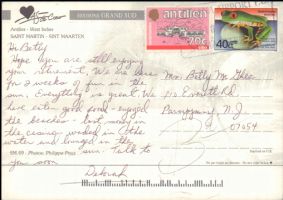 EDITIONS GRAND SUD
Antilles - West Indies
SAINT MARTIN - SINT MAARTEN
antillen
70c
40c
Hi Betty
Hope you are still enjoying
your retirement. We are here
for 2 weeks of fun in the
sun. Everything is great. We
have eaten good food - enjoyed
the beaches - lost money in
the casino - waded in the
water and lounged in the
sun. Talk to
you soon
Deborah
Mrs. Betty Mc Ghee
Parsippany N. J.
07054
Photos: Philippe Poux